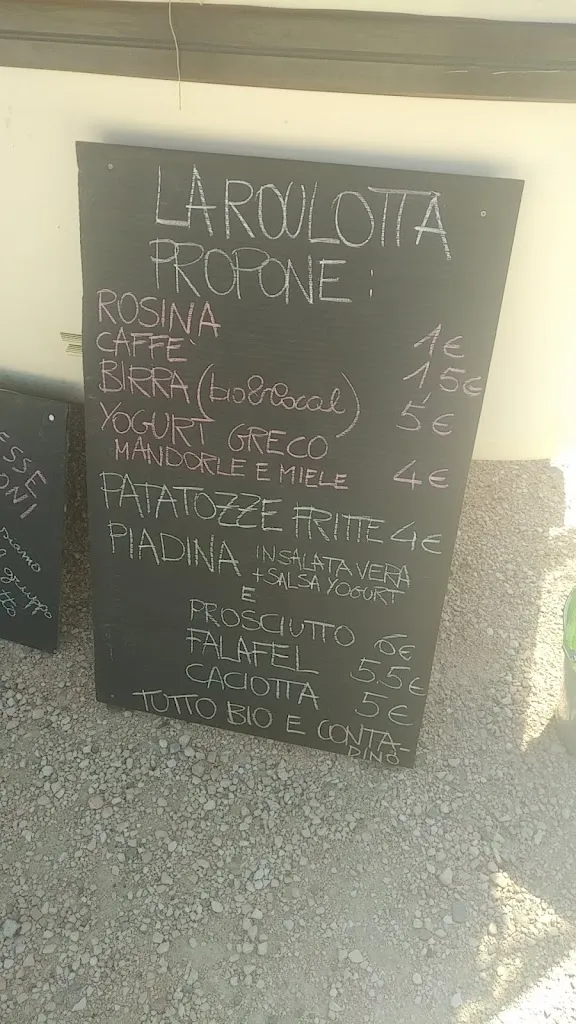 LA ROULOTTA
PROPONE:
ROSINA 1€
CAFFE' 1,5€
BIRRA (bio & local) 5€
YOGURT GRECO
MANDORLE E MIELE 4€
PATATOZZE FRITTE 4€
PIADINA INSALATA VERA
+SALSA YOGURT
E
PROSCIUTTO 6€
FALAFEL 5,5€
CACIOTTA 5€
TUTTO BIO E CONTA-
DINO
ESSE
ONI
gruppo